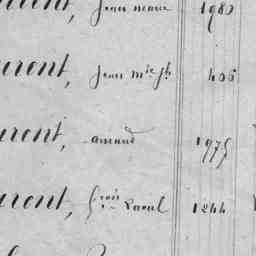 urent, Jean marie 1980
urent, Jean Mie Jh 405
urent, amand 1975
urent, frois Laval 1244